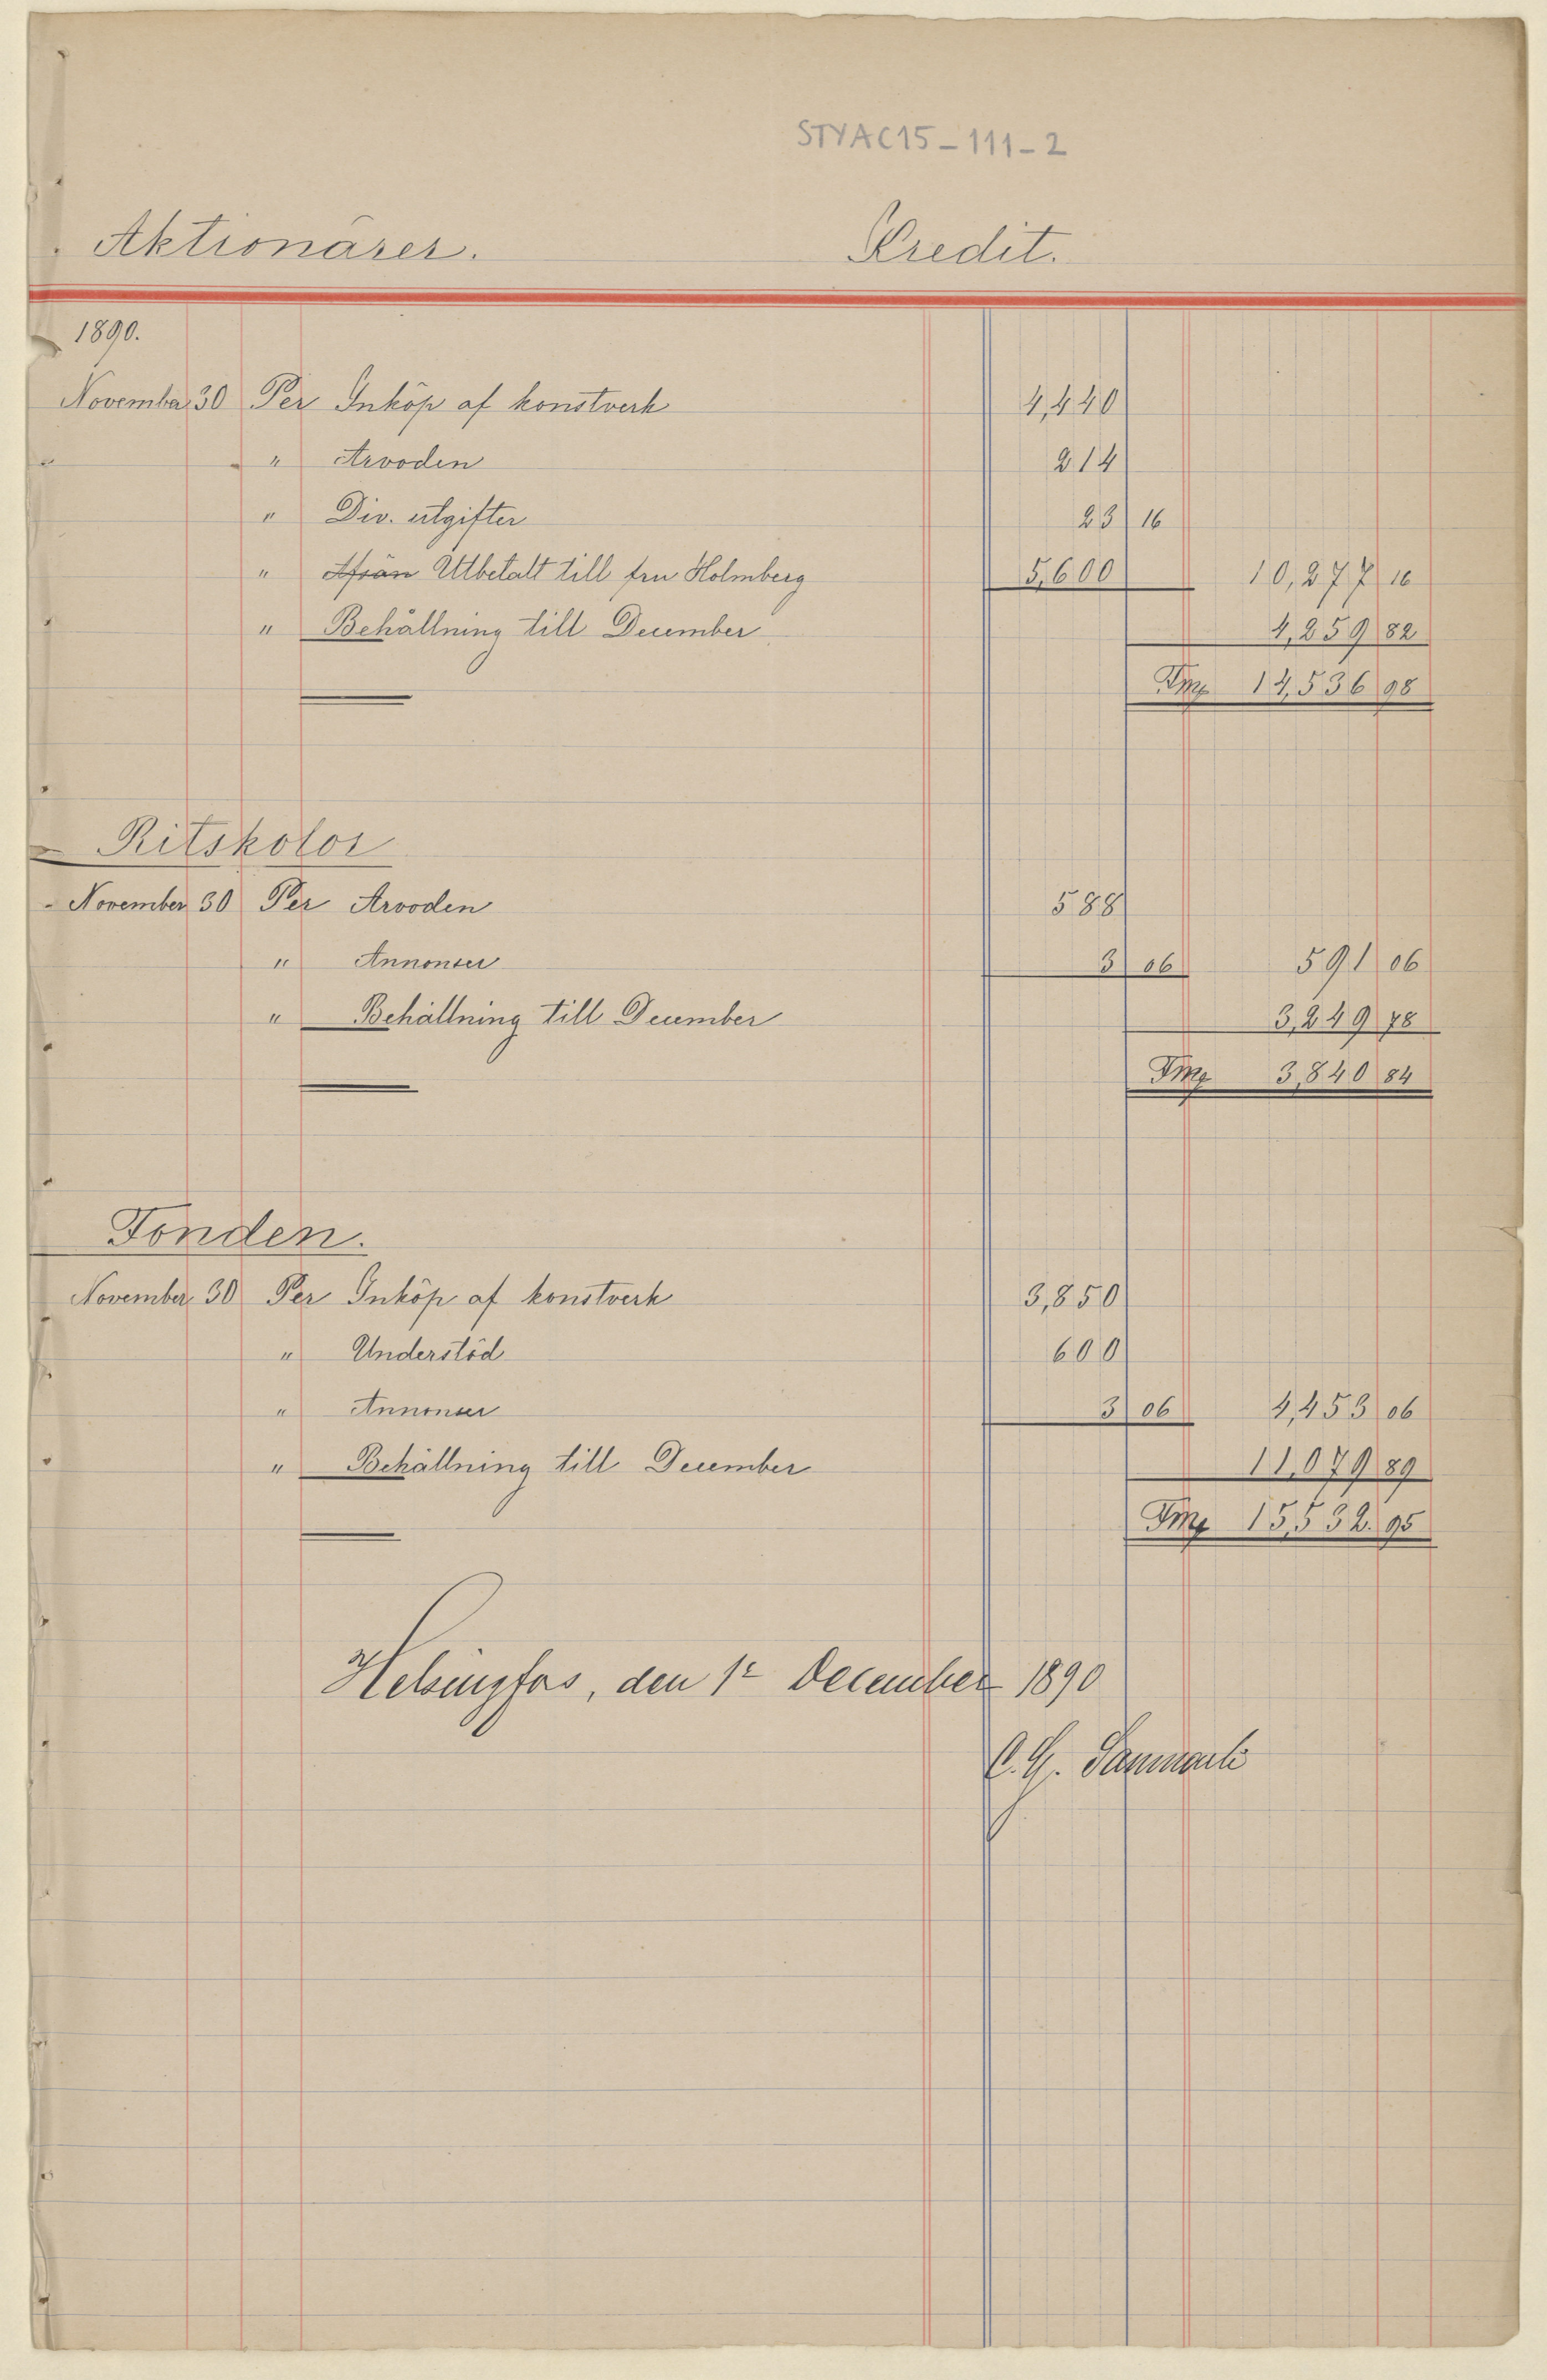 STYAC15-111-2
Aktionärer. Kredit.
1890.
November 30 Per Inköp af konstverk 4,440
" Arvoden 214
" Div. utgifter 23 16
" Afrån Utbetalt till fru Holmberg 5,600 10,277 16
" Behållning till December 4,259 82
Fmg 14,536 98
Ritskolor
November 30 Per Arvoden 588
" Annonser 3 06 591 06
" Behållning till December 3,249 78
Fmg 3,840 84
Fonden.
November 30 Per Inköp af konstverk 3,850
" Understöd 600
" Annonser 3 06 4,453 06
" Behållning till December 11,079 89
Fmg 15,532. 95
Helsingfors, den 1 December 1890
C. G. Sanmark